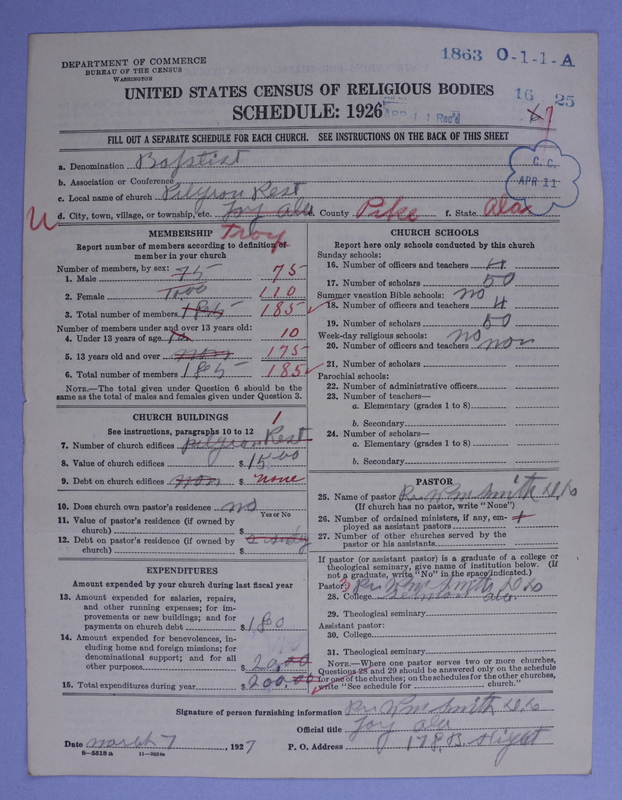 DEPARTMENT OF COMMERCE
BUREAU OF THE CENSUS
WASHINGTON
1863 O-1-1-A
UNITED STATES CENSUS OF RELIGIOUS BODIES
SCHEDULE: 1926
APR 11 Rec'd
16 25
FILL OUT A SEPARATE SCHEDULE FOR EACH CHURCH. SEE INSTRUCTIONS ON THE BACK OF THIS SHEET
C. C.
APR 11
a. Denomination Bapstist
b. Association or Conference
c. Local name of church Pilgron Rest
U d. City, town, village, or township, etc. Toy Ala e. County Pike f. State Ala
Troy
MEMBERSHIP
Report number of members according to definition of
member in your church
Number of members, by sex:
1. Male 75 75
2. Female 110
3. Total number of members 185 185
Number of members under and over 13 years old:
4. Under 13 years of age 10
5. 13 years old and over non 175
6. Total number of members 185 185
NOTE.—The total given under Question 6 should be the
same as the total of males and females given under Question 3.
CHURCH BUILDINGS
See instructions, paragraphs 10 to 12 1
7. Number of church edifices pilgron Rest
8. Value of church edifices $ 1500
9. Debt on church edifices non $ none
10. Does church own pastor's residence no
Yes or No
11. Value of pastor's residence (if owned by
church) $
12. Debt on pastor's residence (if owned by
church) $
EXPENDITURES
Amount expended by your church during last fiscal year
13. Amount expended for salaries, repairs,
and other running expenses; for im-
provements or new buildings; and for
payments on church debt $ 180
14. Amount expended for benevolences, in-
cluding home and foreign missions; for
denominational support; and for all
other purposes $ 20,00
15. Total expenditures during year $ 200,00
CHURCH SCHOOLS
Report here only schools conducted by this church
Sunday schools:
16. Number of officers and teachers 4
17. Number of scholars 50
Summer vacation Bible schools: no
18. Number of officers and teachers 4
19. Number of scholars 50
Week-day religious schools: no
20. Number of officers and teachers non
21. Number of scholars
Parochial schools:
22. Number of administrative officers
23. Number of teachers—
a. Elementary (grades 1 to 8)
b. Secondary
24. Number of scholars—
a. Elementary (grades 1 to 8)
b. Secondary
PASTOR
25. Name of pastor Rev W M Smith
(If church has no pastor, write "None")
26. Number of ordained ministers, if any, em-
ployed as assistant pastors
27. Number of other churches served by the
pastor or his assistants
If pastor (or assistant pastor) is a graduate of a college or
theological seminary, give name of institution below. (If
not a graduate, write "No" in the space indicated.)
Pastor: Rev W M Smith
28. College Ala
29. Theological seminary
Assistant pastor:
30. College
31. Theological seminary
NOTE.—Where one pastor serves two or more churches,
Questions 28 and 29 should be answered only on the schedule
for one of the churches; on the schedules for the other churches,
write "See schedule for church."
Signature of person furnishing information Rev W M Smith
Official title Toy Ala
Date march 7, 1927 P. O. Address 178, B.
8—5518 a